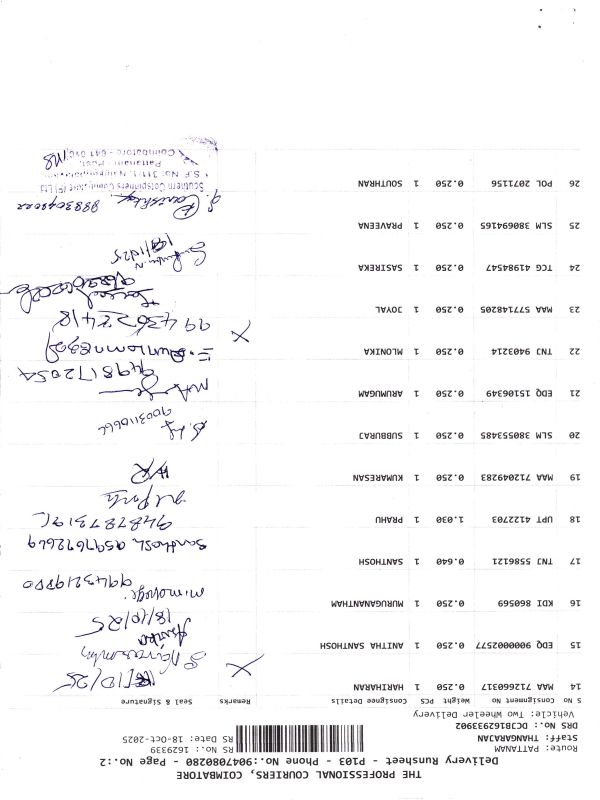 THE PROFESSIONAL COURIERS, COIMBATORE
Delivery Runsheet - P103 - Phone No.:9047080280 - Page No.:2
Route: PATTANAM
Staff: THANGARAJAN
DRS No.: DCB1629339O2
Vehicle: Two Wheeler Delivery
RS No.: 1629339
RS Date: 18-Oct-2025
S No Consignment No Weight PCS Consignee Details Remarks Seal & Signature
14 MAA 712660317 0.250 1 HARIHARAN /10/25
15 EDQ 900002577 0.250 1 ANITHA SANTHOSH 18/10/25
16 KDI 860569 0.250 1 MURUGANANTHAM 9943219880
17 TNJ 5586121 0.640 1 SANTHOSH Santhosh 9597692669
18 UPT 4122703 1.030 1 PRAHU
19 MAA 712049283 0.250 1 KUMARESAN
20 SLM 380553485 0.250 1 SUBBURAJ 9003110666
21 EDQ 15106349 0.250 1 ARUMUGAM 9498172054
22 TNJ 9403214 0.250 1 MLONIKA
23 MAA 577148205 0.250 1 JOYAL
24 TCG 41984547 0.250 1 SASIREKA
25 SLM 380694165 0.250 1 PRAVEENA
26 POL 2071156 0.250 1 SOUTHRAN
Pattanam Post,
Coimbatore - 641